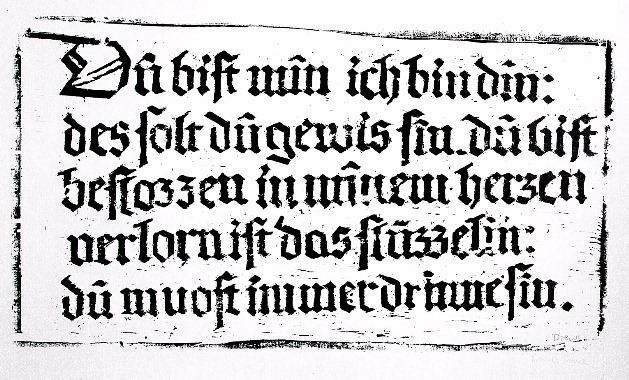 Dû biſt mîn ich bin dîn:
des ſolt dû gewis ſîn. dû biſt
beſlozzen in mînem herzen
verlorn iſt das ſlüzzelîn:
dû muoſt immer drinne ſin.